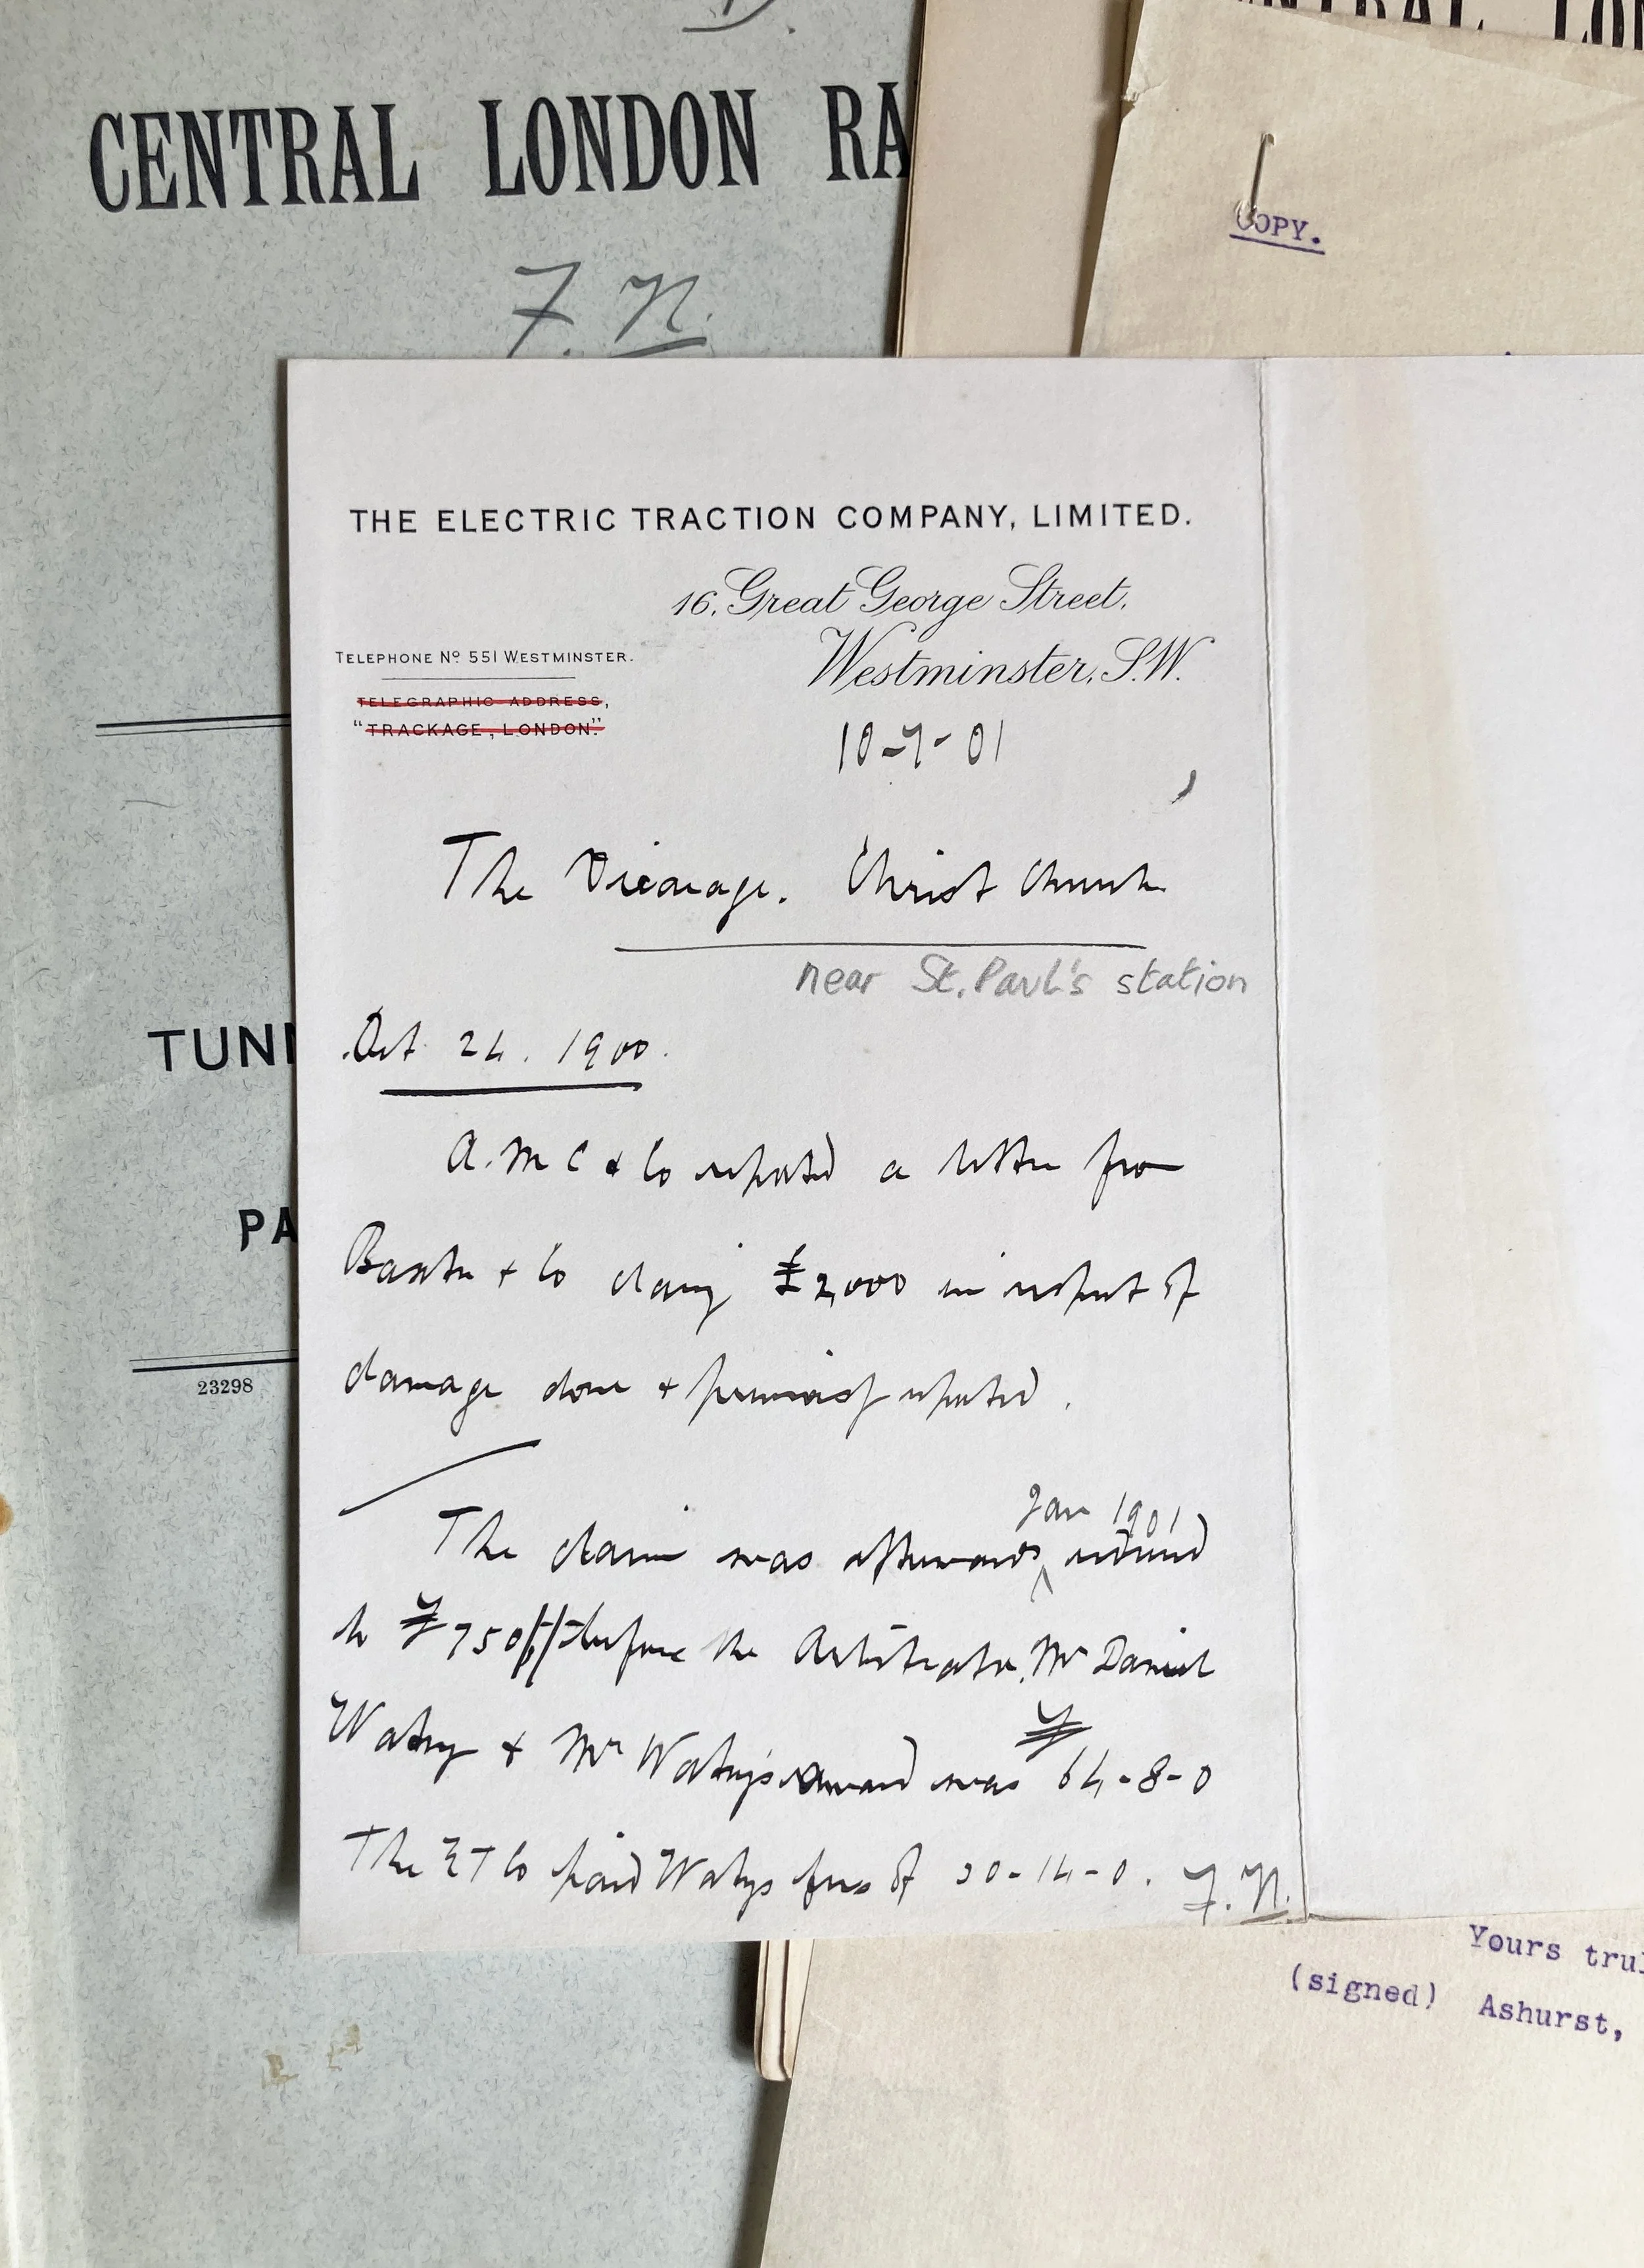 CENTRAL LONDON RA
F. N.
COPY.
THE ELECTRIC TRACTION COMPANY, LIMITED.
16, Great George Street,
Westminster, S.W.
TELEPHONE No 551 WESTMINSTER.
TELEGRAPHIC ADDRESS,
"TRACKAGE, LONDON."
10-7-01
The Vicarage. Christ Church
near St. Paul's station
Oct 24. 1900.
A. M C & Co reported a letter from
Baxter & Co claiming £2,000 in respect of
damage done & premises reported.
Jan 1901
The claim was afterwards reduced
to £750 before the Arbitrator, Mr Daniel
Watney & Mr Watney's award was £64-8-0
The ET Co paid Watneys fees of 30-14-0. F.N.
TUN
PA
23298
Yours trul
(signed) Ashurst,